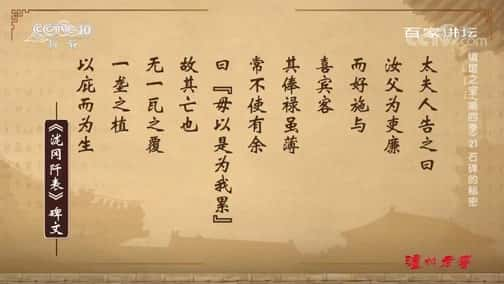 CCTV 10
百家讲坛
太夫人告之曰
汝父为吏廉
而好施与
喜宾客
其俸禄虽薄
常不使有余
曰『毋以是为我累』
故其亡也
无一瓦之覆
一垄之植
以庇而为生
《泷冈阡表》碑文
镇馆之宝(第四季)21 石碑的秘密
泸州老窖